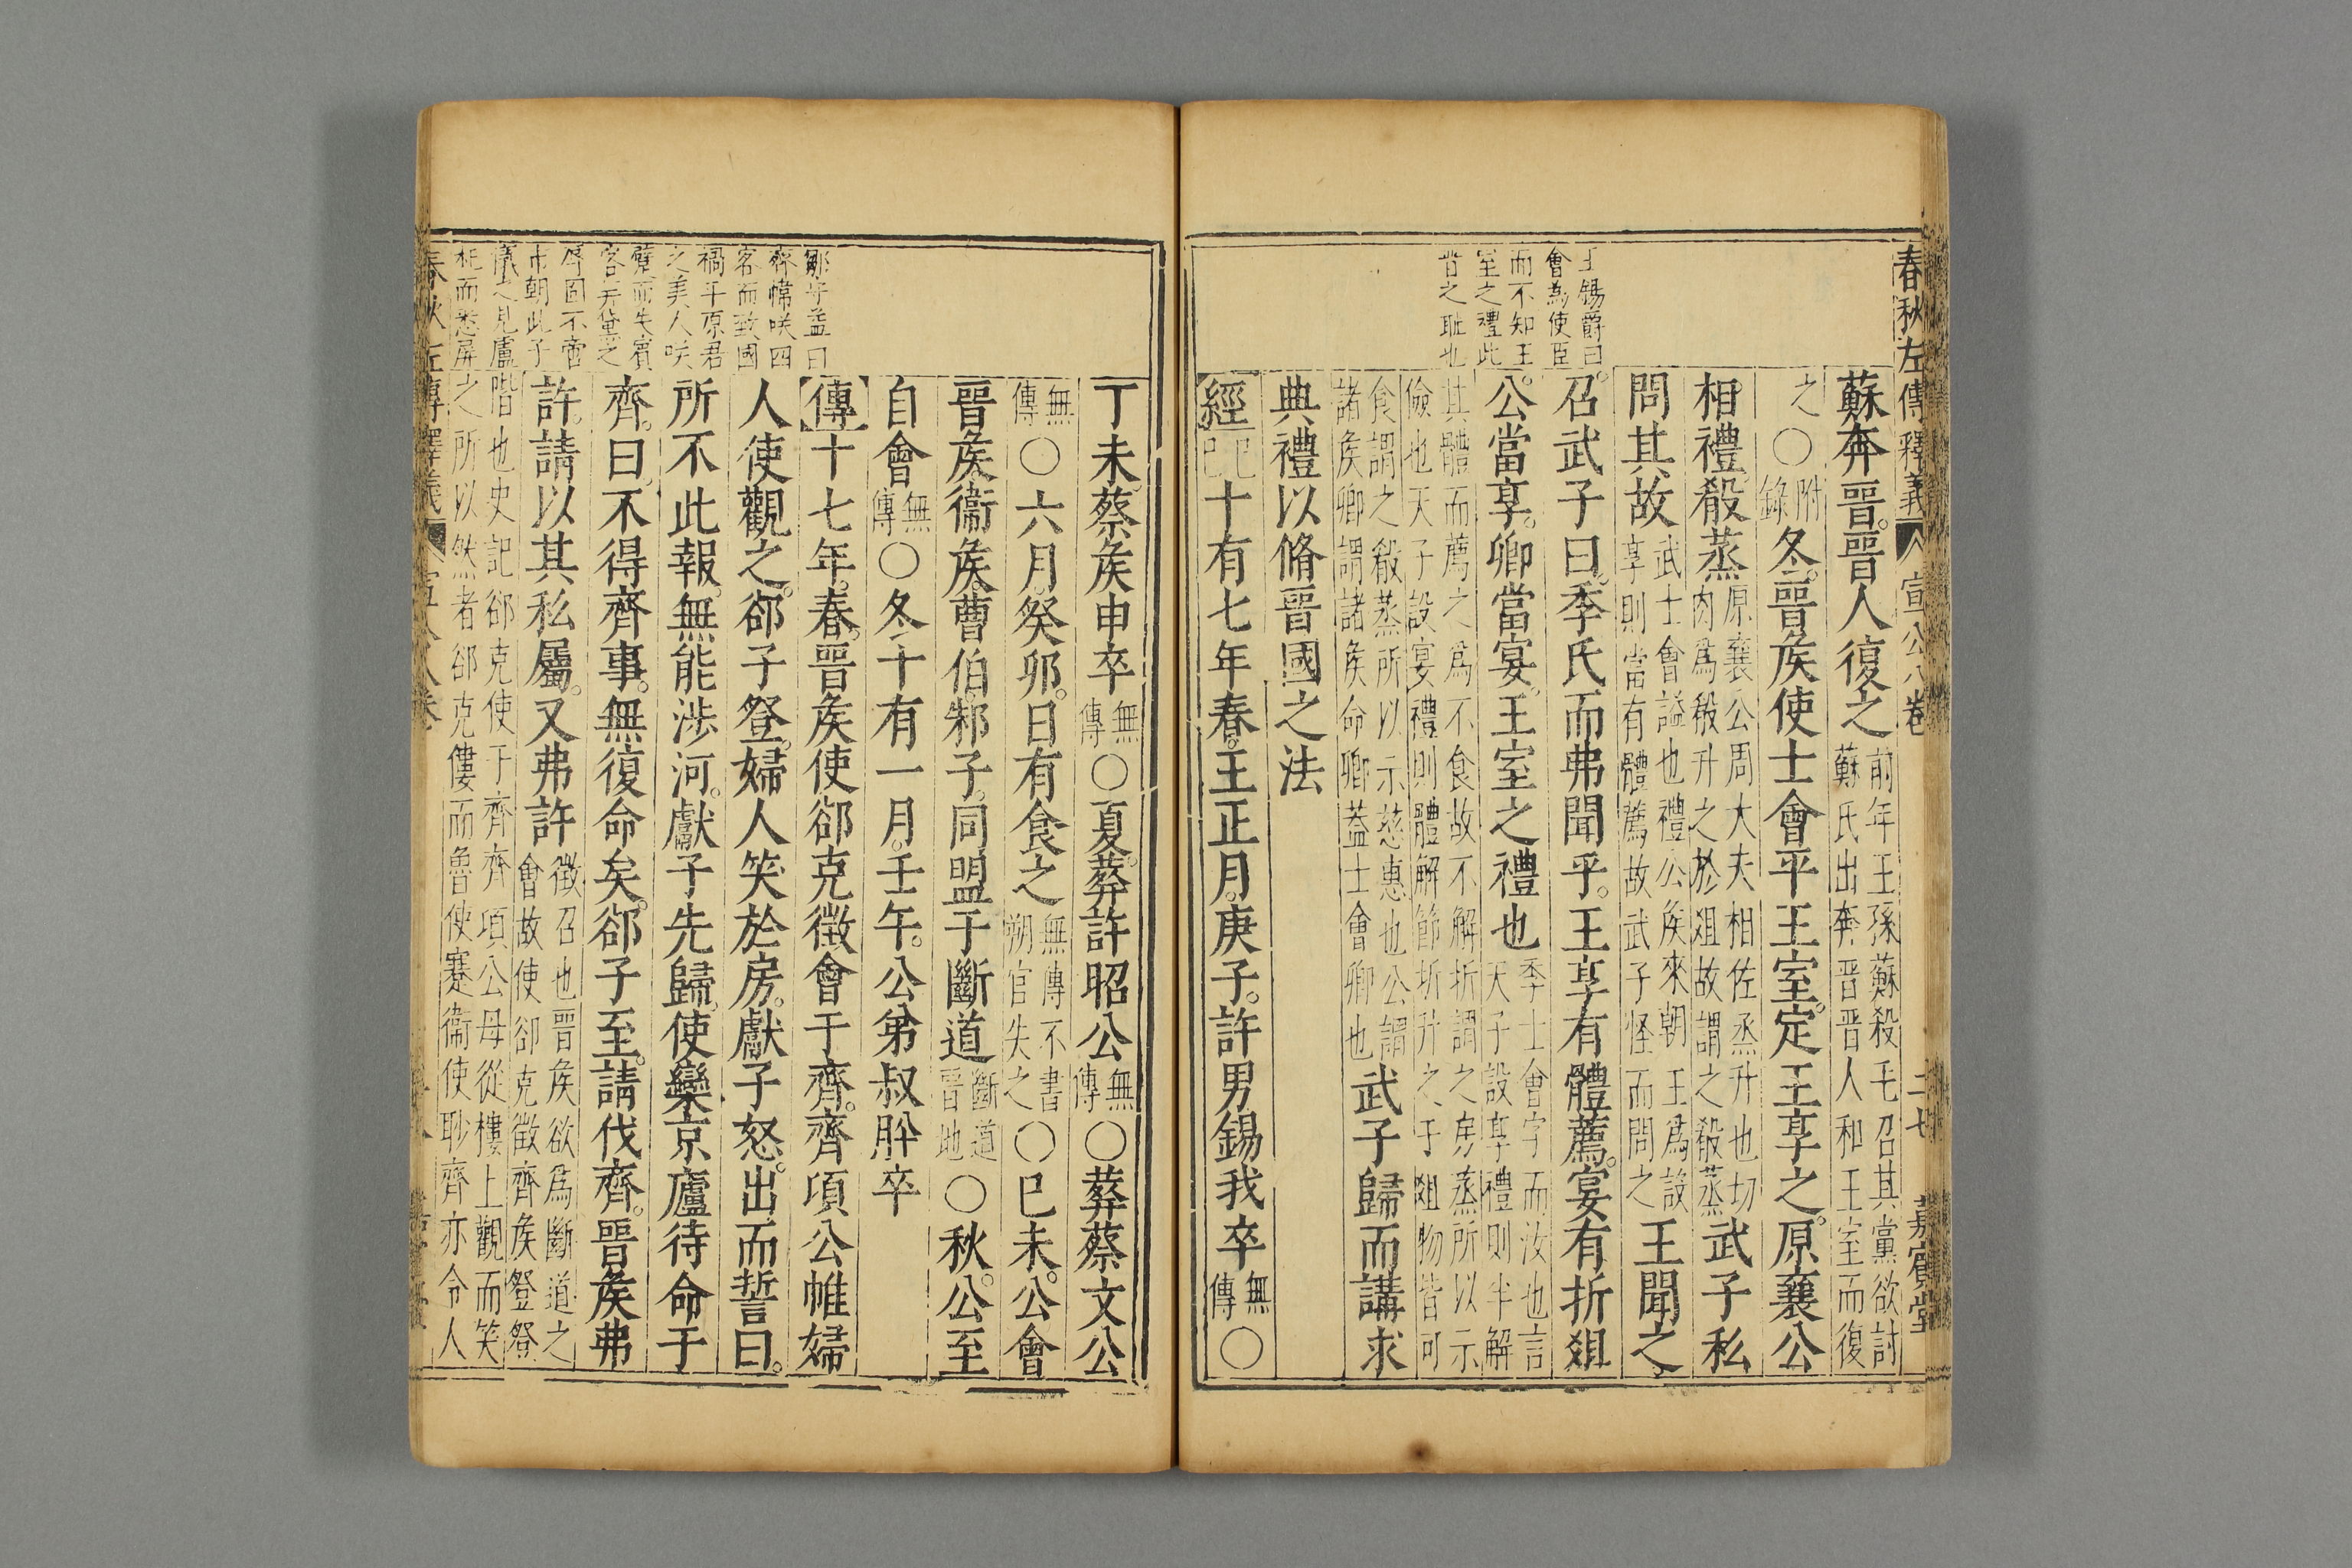 春秋左傳釋義 宣公八卷 二七 嘉賓堂
王錫爵曰
會為使臣
而不知王
室之禮此
昔之耻也
蘇奔晉。晉人復之 前年王孫蘇殺毛召其黨欲討
蘇氏出奔晉晉人和王室而復
之〇附錄冬。晉矦使士會平王室。定王享之。原襄公
相禮。殽蒸 原襄公周大夫相佐烝升也切
肉爲殽升之於俎故謂之殽蒸 武子私
問其故 武士會謚也禮公矦來朝王爲設
享則當有體薦故武子怪而問之 王聞之。
召。武子曰。季氏而弗聞乎。王享有體薦。宴有折俎
公。當享。卿當宴。王室之禮也 季士會字而汝也言
天子設享禮則半解
其體而薦之爲不食故不解折謂之房蒸所以示
儉也天子設宴禮則體解節折升之于俎物皆可
食謂之殽蒸所以示慈惠也公謂
諸矦卿謂諸矦命卿蓋士會卿也 武子歸而講求
典禮以脩晉國之法
經 己巳十有七年春。王正月。庚子。許男錫我卒 無傳〇
丁未。蔡矦申卒 無傳〇夏。葬許昭公 無傳〇葬蔡文公
無傳〇六月。癸卯。日有食之 無傳不書
朔官失之〇己未。公會
晉矦。衞矦。曹伯。邾子。同盟于斷道 斷道
晉地〇秋。公至
自會 無傳〇冬十有一月。壬午。公弟叔肸卒
傳十七年。春。晉矦使郤克徵會于齊。齊項公帷婦
人使觀之。郤子登。婦人笑於房。獻子怒。出而誓曰。
所不此報。無能涉河。獻子先歸。使欒京廬待命于
齊。曰。不得齊事。無復命矣。郤子至。請伐齊。晉矦弗
許。請以其私屬。又弗許 徵召也晉矦欲爲斷道之
會故使郤克徵齊矦登登
階也史記郤克使于齊齊項公母從樓上觀而笑
之所以然者郤克僂而魯使蹇衞使眇齊亦令人
鄒守益曰
齊幃咲四
客而致國
禍平原君
之美人咲
躄而失賓
客
辱固不啻
市朝此子